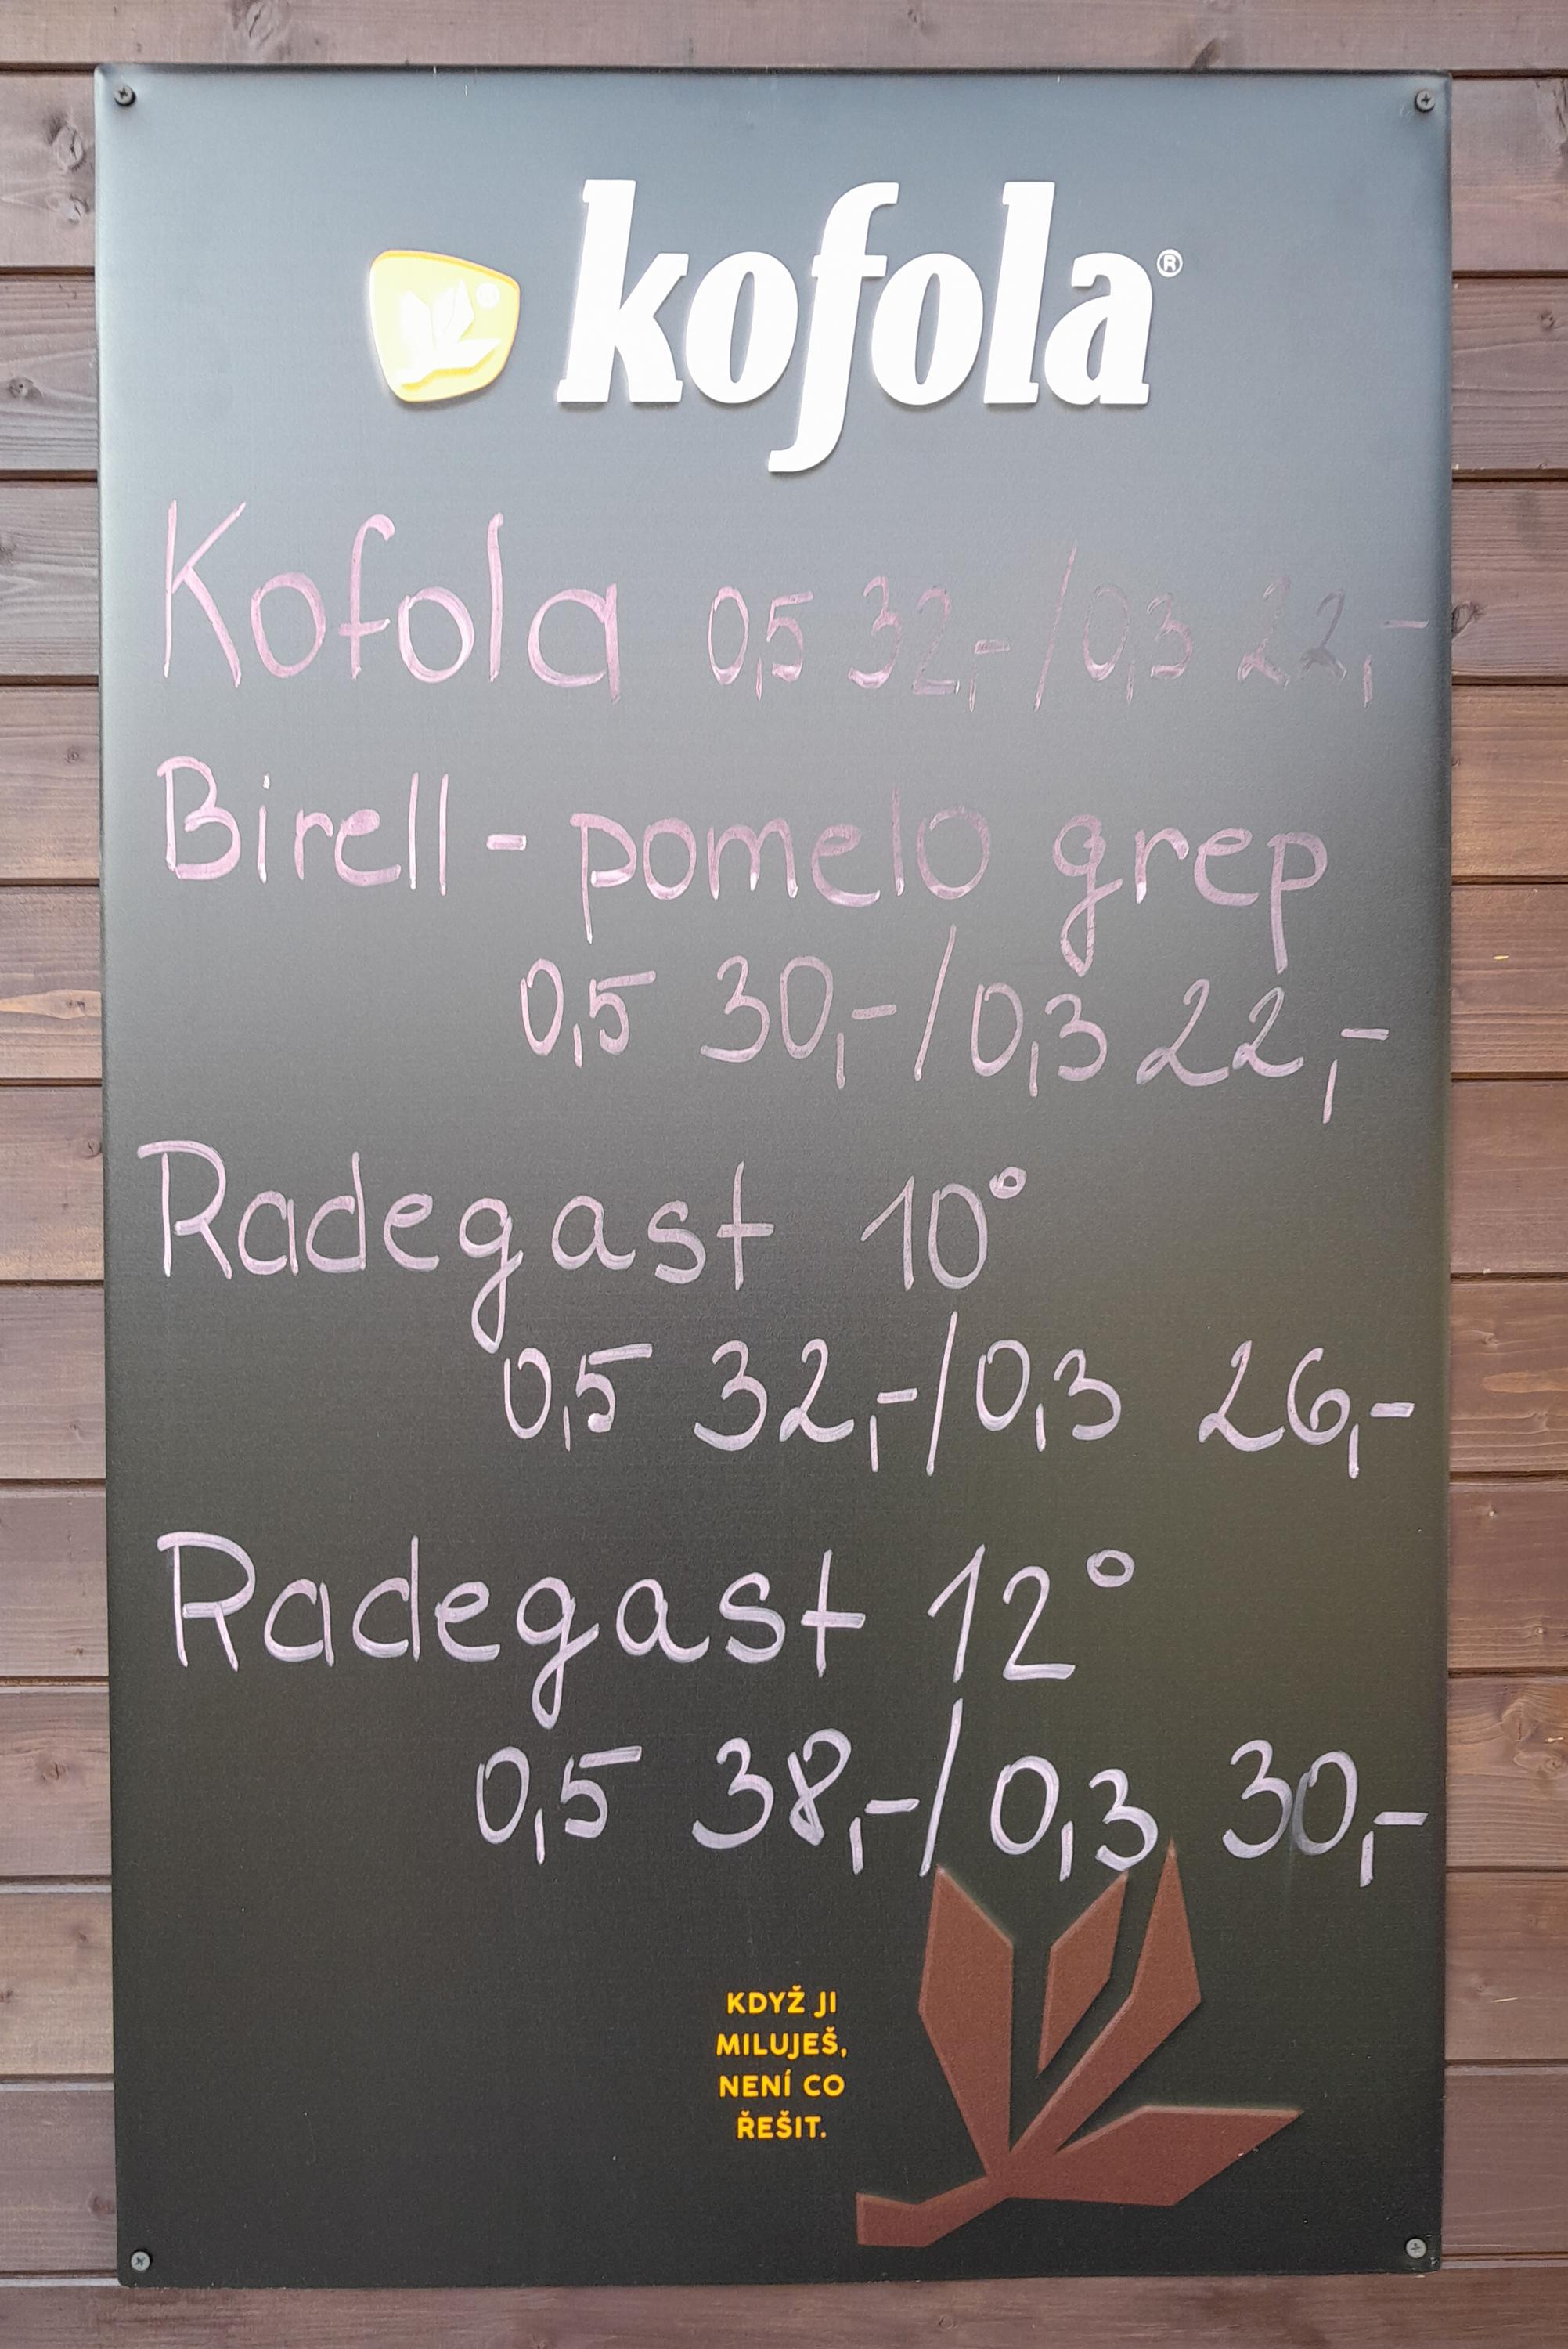 kofola®
Kofola 0,5 32,-/0,3 22,-
Birell - pomelo grep
0,5 30,-/0,3 22,-
Radegast 10°
0,5 32,-/0,3 26,-
Radegast 12°
0,5 38,-/0,3 30,-
KDYŽ JI
MILUJEŠ,
NENÍ CO
ŘEŠIT.